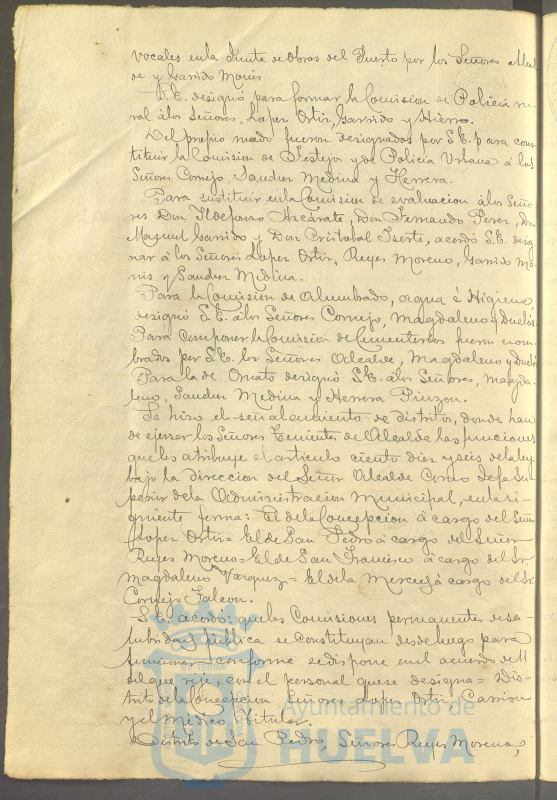 vocales en la Junta de Obras del Puerto por los Señores Alcal
de y Garrido Monis
S.E. designó para formar la Comision de Policía ru
ral á los Señores Lopez Ortiz, Garrido y Hierro.
Del propio modo fueron designados por S.E. para cons
tituir la Comision de Festejos y de Policía Urbana á los
Señores Cornejo, Sanchez Medina y Herrera.
Para sustituir en la Comision de evaluacion á los Seño
res Don Ildefonso Azcárate, Don Fernando Perez, Don
Manuel Garrido y Don Cristobal Iserte, acordó S.E. desig
nar á los Señores Lopez Ortiz, Reyes Moreno, Garrido Mo
nis y Sanchez Medina.
Para la Comision de Alumbrado, agua é Higiene
designó S.E. á los Señores Cornejo, Magdaleno y Duclós
Para componer la Comision de Cementerios fueron nom
brados por S.E. los Señores Alcalde, Magdaleno y Duclós
Para la de Ornato designó S.E. á los Señores, Magda
leno, Sanchez Medina y Herrera Pinzon.
Se hizo el señalamiento de distritos, donde han
de ejercer los Señores Tenientes de Alcalde las funciones
que les atribuye el articulo ciento diez y seis de la ley
bajo la direccion del Señor Alcalde como Jefe Su
perior de la Administracion Municipal, en la si-
guiente forma: El de la Concepcion á cargo del Señor
Lopez Ortiz = El de San Pedro á cargo del Señor
Reyes Moreno = El de San Francisco á cargo del Sr.
Magdaleno Vazquez = El de la Merced á cargo del Sr.
Cornejo Falcon.
S.E. acordó: que las Comisiones permanentes de sa-
lubridad pública se constituyan desde luego para
funcionar conforme se dispone en el acuerdo de 11
del que rije, con el personal que se designa = Dis-
trito de la Concepcion Señores Lopez Ortiz, Carrion
y el Médico Titular.
Distrito de San Pedro, Señores Reyes Moreno,
Ayuntamiento de
HUELVA